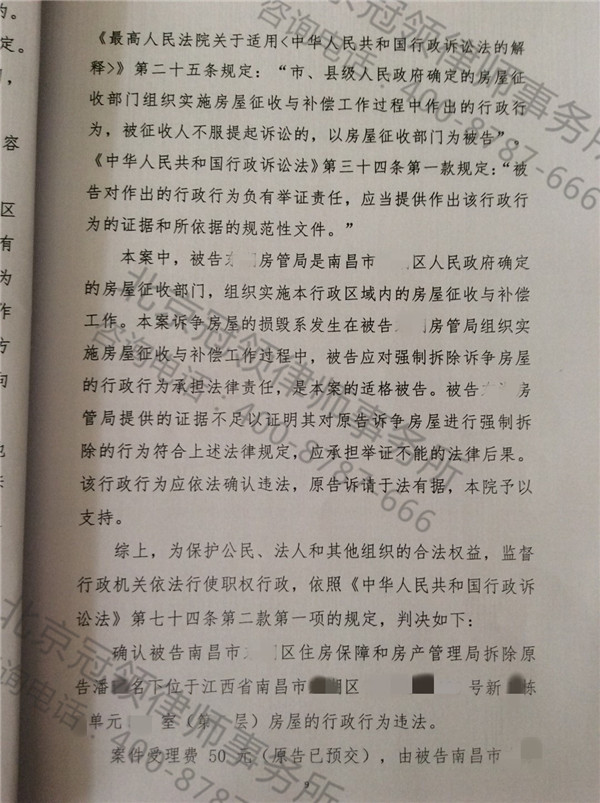 《最高人民法院关于适用<中华人民共和国行政诉讼法的解
释>》第二十五条规定：“市、县级人民政府确定的房屋征
收部门组织实施房屋征收与补偿工作过程中作出的行政行
为，被征收人不服提起诉讼的，以房屋征收部门为被告”，
《中华人民共和国行政诉讼法》第三十四条第一款规定：“被
告对作出的行政行为负有举证责任，应当提供作出该行政行
为的证据和所依据的规范性文件。”
本案中，被告 房管局是南昌市 区人民政府确定
的房屋征收部门，组织实施本行政区域内的房屋征收与补偿
工作。本案诉争房屋的损毁系发生在被告 房管局组织实
施房屋征收与补偿工作过程中，被告应对强制拆除诉争房屋
的行政行为承担法律责任，是本案的适格被告。被告 房
管局提供的证据不足以证明其对原告诉争房屋进行强制拆
除的行为符合上述法律规定，应承担举证不能的法律后果。
该行政行为应依法确认违法，原告诉请于法有据，本院予以
支持。
综上，为保护公民、法人和其他组织的合法权益，监督
行政机关依法行使职权行政，依照《中华人民共和国行政诉
讼法》第七十四条第二款第一项的规定，判决如下：
确认被告南昌市 区住房保障和房产管理局拆除原
告潘 名下位于江西省南昌市 湖区 号新 栋
单元 室（第 层）房屋的行政行为违法。
案件受理费 50 元（原告已预交），由被告南昌市
9
的。
定。
容
区
有
为
作
方
向
北京冠领律师事务所
咨询电话：400-8787-666
北京冠领律师事务所
咨询电话：400-8787-666
北京冠领律师事务所
咨询电话：400-8787-666